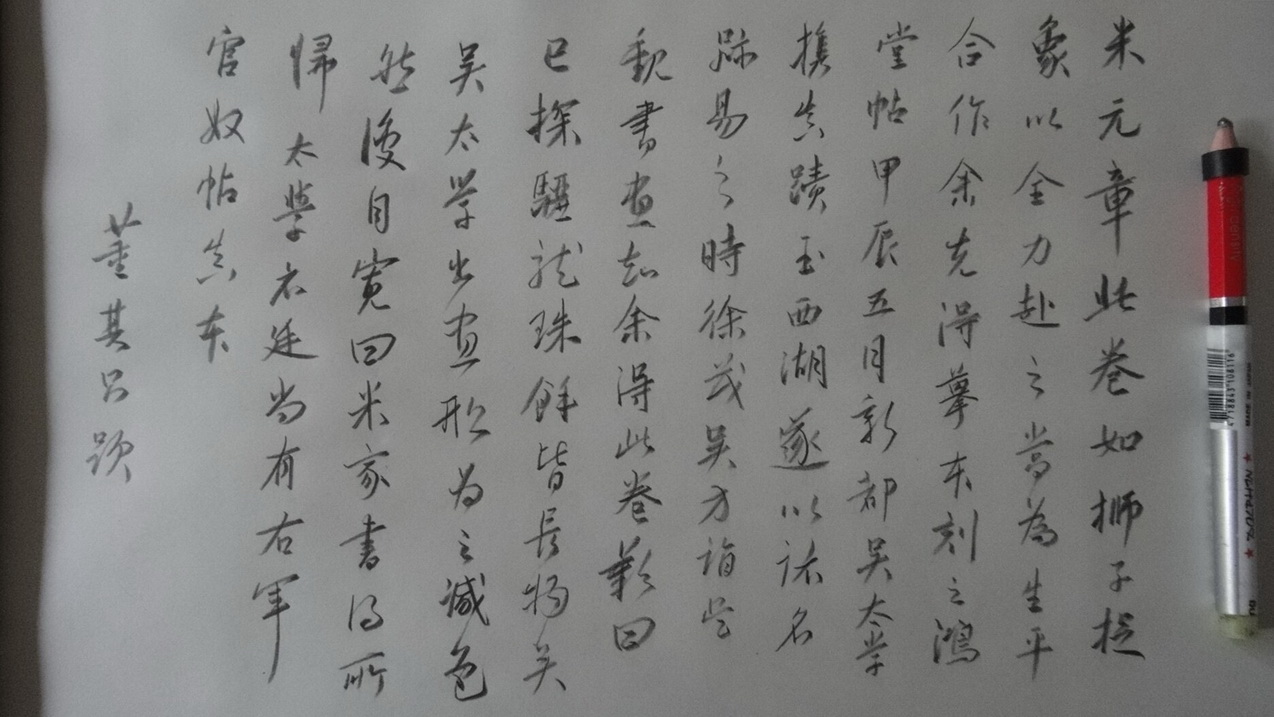 米元章此卷如獅子捉
象以全力赴之當為生平
合作余先得摹本刻之鴻
堂帖甲辰五月新都吳太学
携真蹟至西湖遂以諸名
跡易之時徐茂吳方詣吳
觀書畫知余得此卷歎曰
已探驪龍珠餘皆長物矣
吳太学書畫船为之減色
然後自寬曰米家書得所
歸太學名廷尚有右軍
官奴帖真本
董其昌題